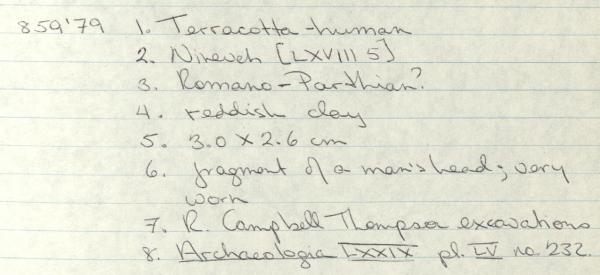 859'79 1. Terracotta - human
2. Nineveh [LXVIII 5]
3. Romano-Parthian?
4. reddish clay
5. 3.0 x 2.6 cm
6. fragment of a man's head; very
worn
7. R. Campbell Thompson excavations
8. Archaeologia LXXIX pl. LV no. 232.